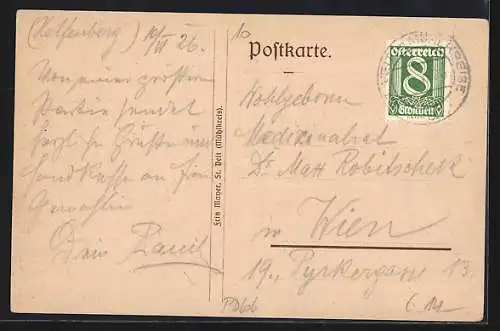 (Helfenberg) 10/VI 26.
Von einer größten
Partie sendet
herzl. Grüße und
Handküsse an Frau
Gemahlin
Dein
Fritz Mayer, St. Veit (Mühlkreis).
10
Postkarte.
Österreich
8
Groschen
Wohlgeboren
Medizinalrat
Dr. Max Robitschek
in Wien
19., Pyrkergasse 13.
PDbb